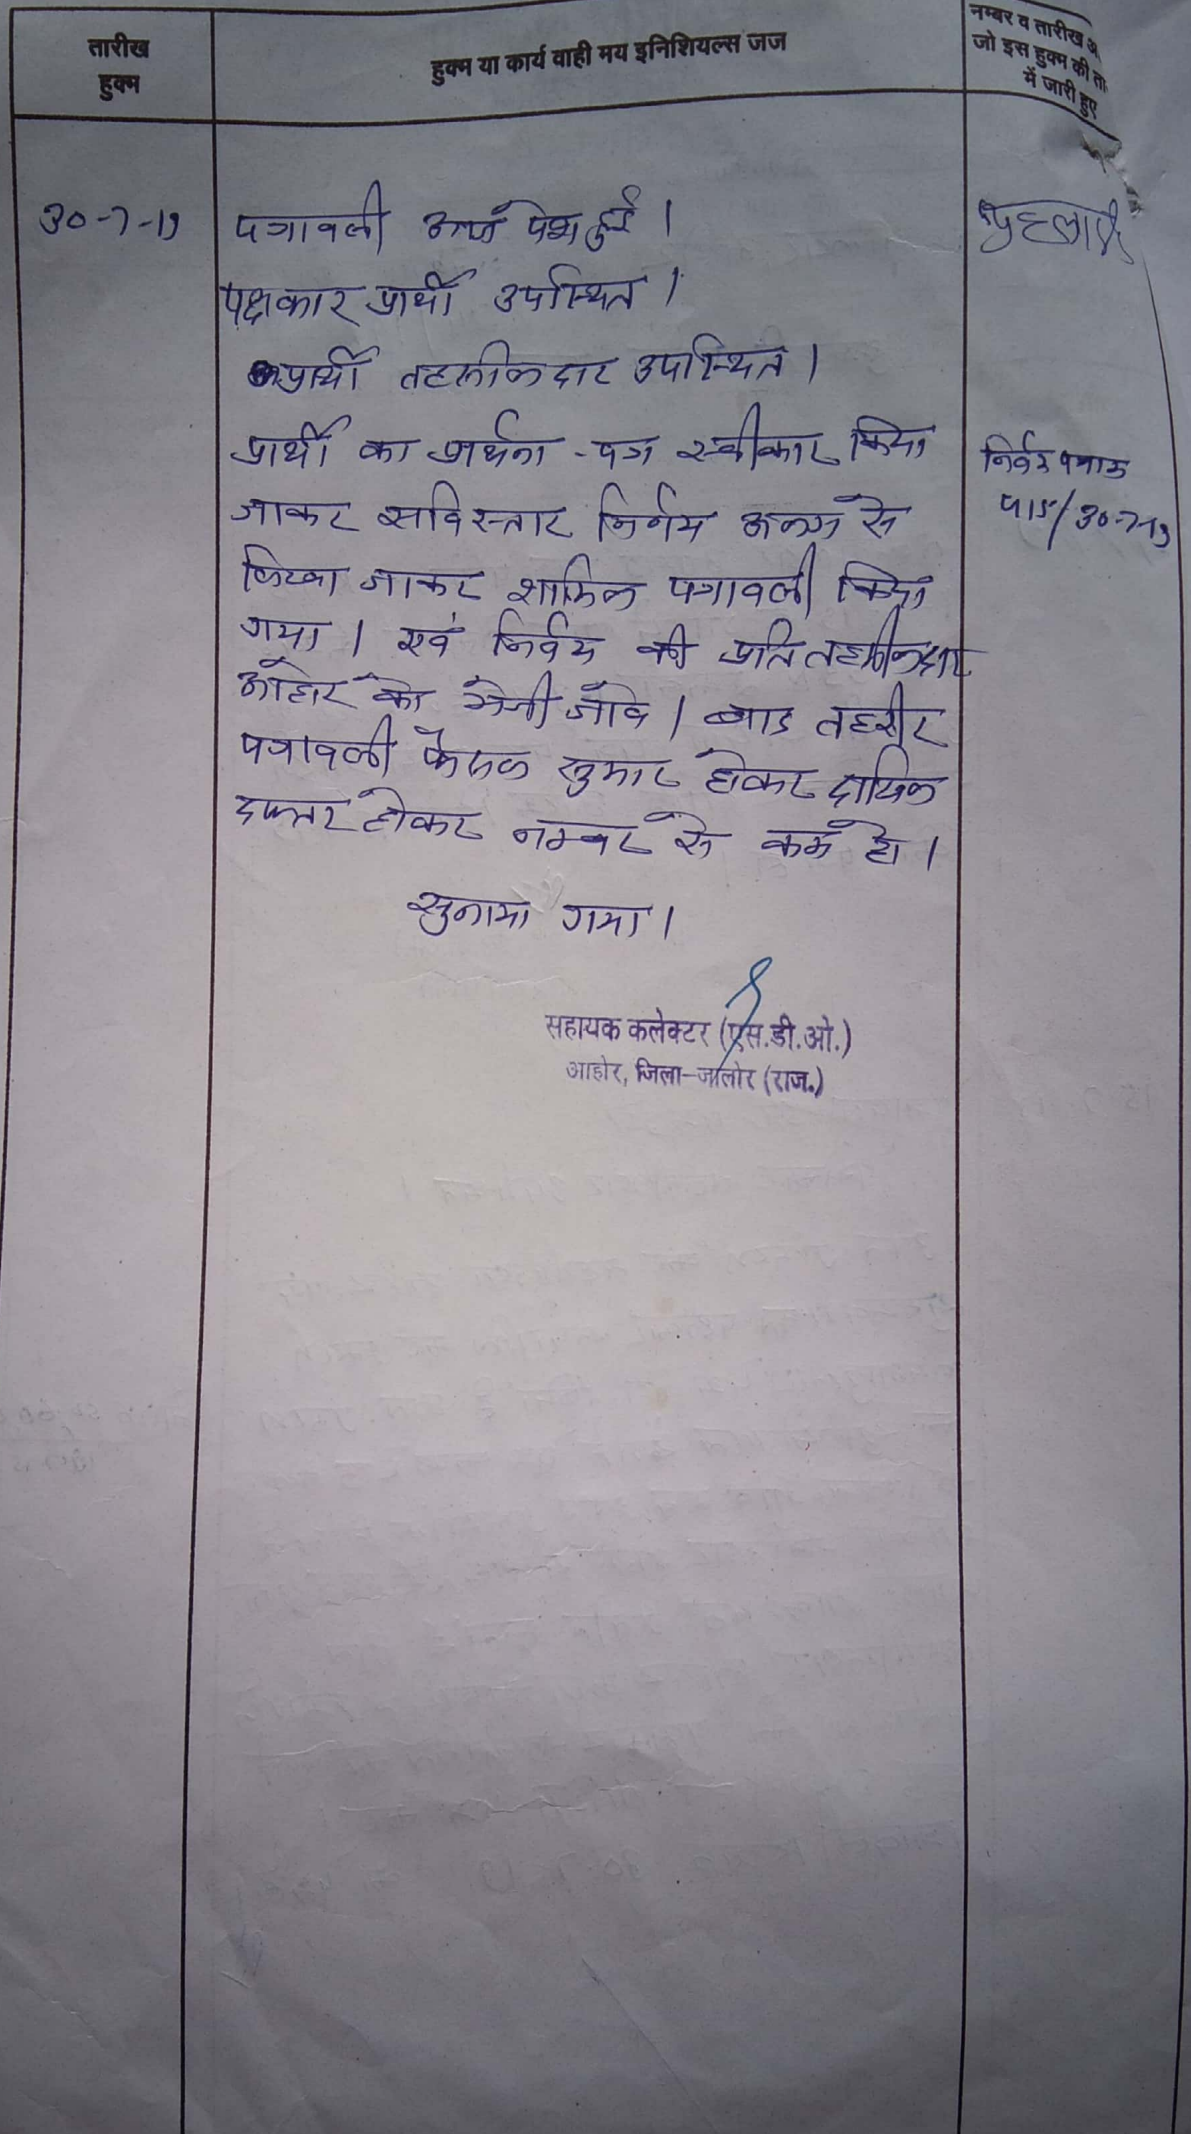 तारीख
हुक्म
हुक्म या कार्य वाही मय इनिशियल्स जज
नम्बर व तारीख अ
जो इस हुक्म की ता
में जारी हुए
30-7-19
पत्रावली आज पेश हुई ।
पक्षकार प्रार्थी उपस्थित ।
प्रार्थी तहसीलदार उपस्थित ।
प्रार्थी का प्रार्थना-पत्र स्वीकार किया
जाकर सविस्तार निर्णय अलग से
लिखा जाकर शामिल पत्रावली किया
गया । एवं निर्णय की प्रति तहसीलदार
आहोर को भेजी जावे । बाद तहरीर
पत्रावली फैसल सुमार होकर दाखिल
दफ्तर होकर नम्बर से कम हो ।
सुनाया गया ।
सहायक कलेक्टर (एस.डी.ओ.)
आहोर, जिला-जालोर (राज.)
निर्णय
30-7-19